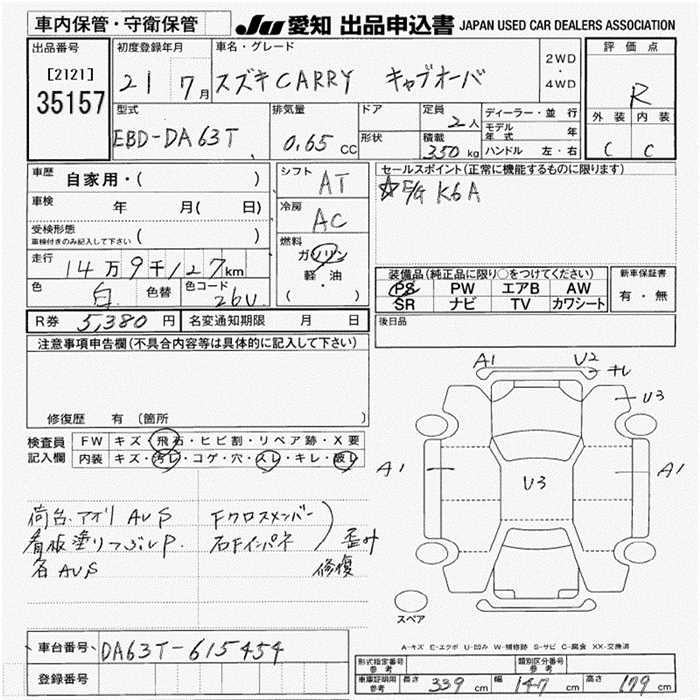 車内保管・守衛保管 JU 愛知 出品申込書 JAPAN USED CAR DEALERS ASSOCIATION
出品番号 初度登録年月 車名・グレード 2WD・4WD 評価点
[2121] 35157 21 7月 スズキCARRY キャブオーバ R
型式 排気量 ドア 定員 2人 ディーラー・並行 外装 内装
EBD-DA63T 0.65 CC 形状 積載 350kg モデル年式 年 ハンドル 左・右 C C
車歴 自家用・( ) シフト AT セールスポイント(正常に機能するものに限ります)
☆E/G K6A
車検 年 月(日) 冷房 AC
受検形態 車検付きのみ記入して下さい ( )
燃料 ガソリン 軽・油 ( ・ )
走行 14万9千127km
装備品(純正品に限り○をつけてください) 新車保証書
PS PW エアB AW 有・無
SR ナビ TV カワシート
色 白 色替 色コード 26U
後日品
R券 5,380円 名変通知期限 月 日
注意事項申告欄(不具合内容等は具体的に記入して下さい)
修復歴 有 〔箇所
A1 U2 ナレ
U3
A1 U3 A1
検査員記入欄 FW キズ・飛石・ヒビ割・リペア跡・X要
内装 キズ・汚レ・コゲ・穴・スレ・キレ・破レ
荷台、アオリ AUS Fクロスメンバー
看板塗りつぶしP. 右Fインパネ 歪み
各AUS 修復
スペア
A-キズ E-エクボ U-凹み W-補修跡 S-サビ C-腐食 XX-交換済
車台番号 DA63T-615454
登録番号
形式指定番号 参考 類別区分番号 参考
車庫証明用 参考 長さ 339cm 幅 147cm 高さ 179cm